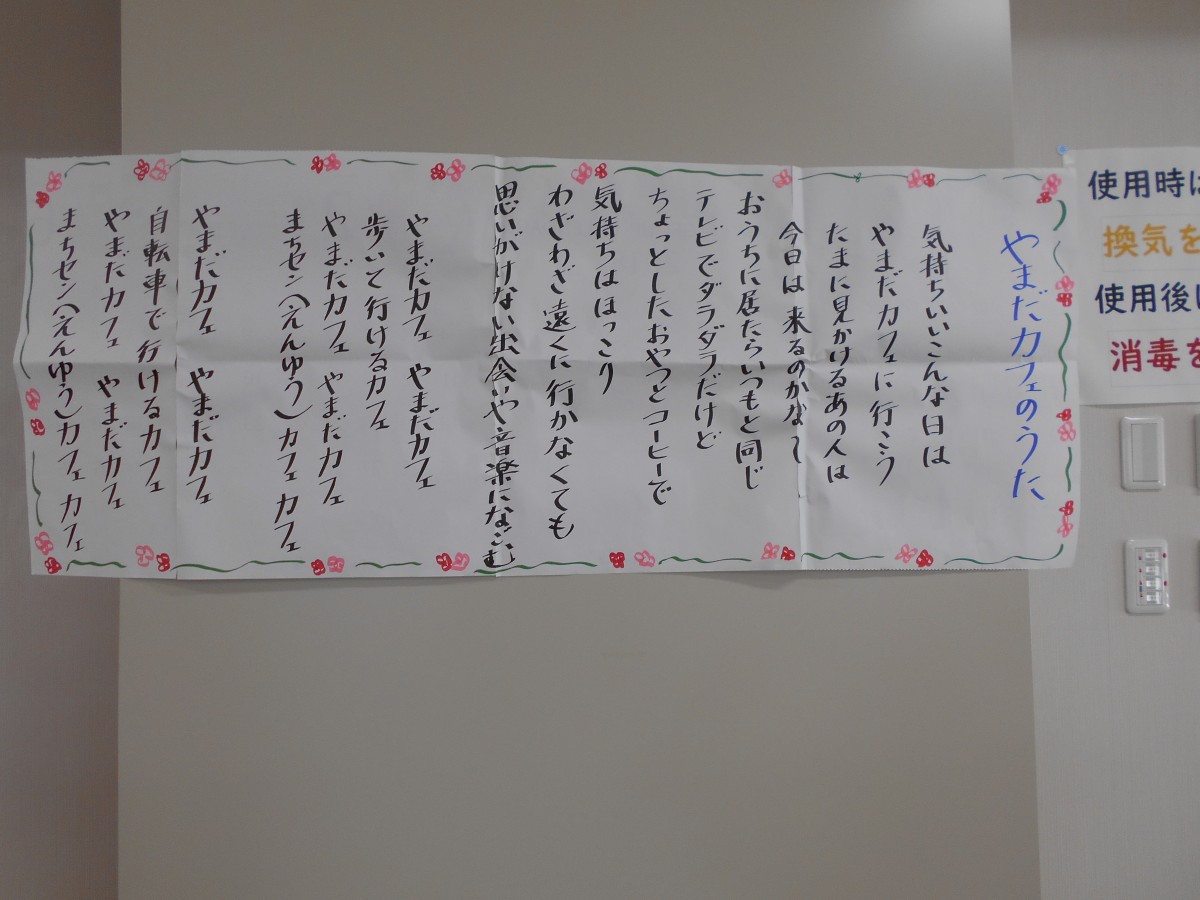 やまだカフェのうた
気持ちいいこんな日は
やまだカフェに行こう
たまに見かけるあの人は
今日は来るのかなぁ〜
おうちに居たらいつもと同じ
テレビでダラダラだけど
ちょっとしたおやつとコーヒーで
気持ちはほっこり
わざわざ遠くに行かなくても
思いがけない出会いや音楽になごむ
やまだカフェ やまだカフェ
歩いて行けるカフェ
やまだカフェ やまだカフェ
まちセン(えんゆう)カフェカフェ
やまだカフェ やまだカフェ
自転車で行けるカフェ
やまだカフェ やまだカフェ
まちセン(えんゆう)カフェカフェ
使用時は
換気を
使用後に
消毒を